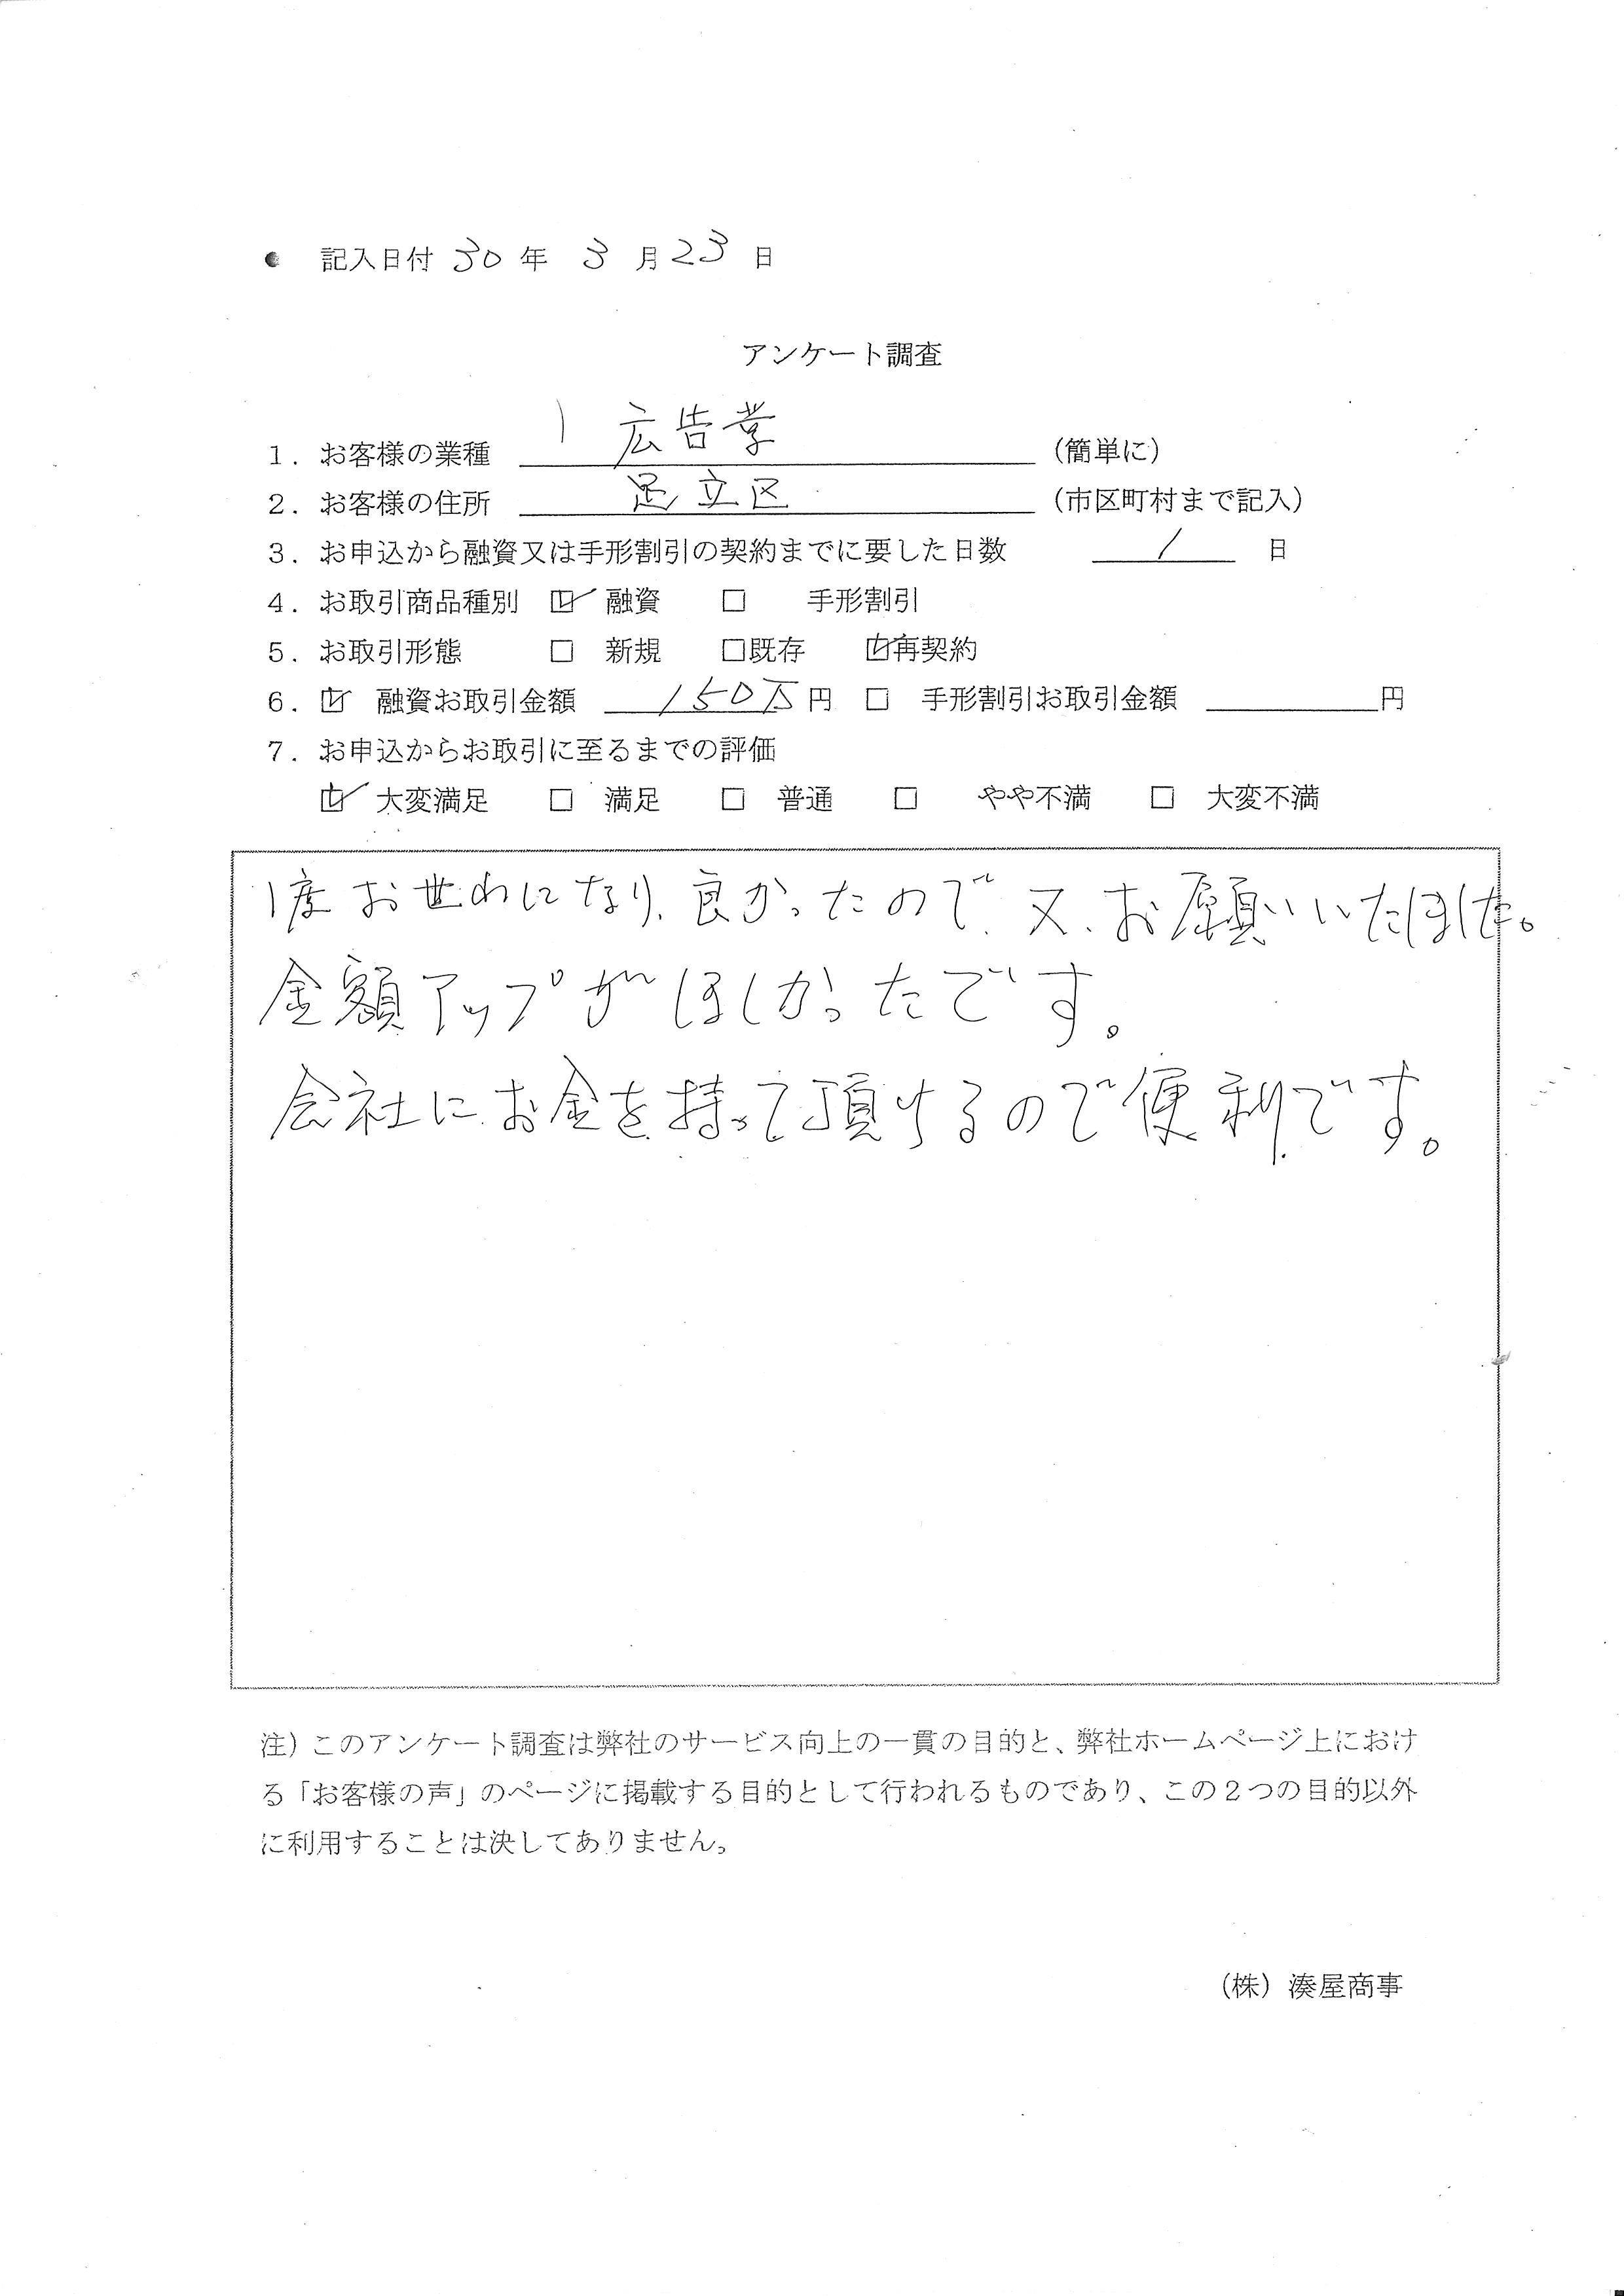 記入日付 30 年 3 月 23 日
アンケート調査
1. お客様の業種 広告業 (簡単に)
2. お客様の住所 足立区 (市区町村まで記入)
3. お申込から融資又は手形割引の契約までに要した日数 1 日
4. お取引商品種別 ☑ 融資 □ 手形割引
5. お取引形態 □ 新規 □既存 ☑再契約
6. ☑ 融資お取引金額 150万 円 □ 手形割引お取引金額 円
7. お申込からお取引に至るまでの評価
☑ 大変満足 □ 満足 □ 普通 □ やや不満 □ 大変不満
1度お世わになり、良かったので、又、お願いいたしました。
金額アップがほしかったです。
会社にお金を持って頂けるので便利です。
注)このアンケート調査は弊社のサービス向上の一貫の目的と、弊社ホームページ上におけ
る「お客様の声」のページに掲載する目的として行われるものであり、この2つの目的以外
に利用することは決してありません。
(株)湊屋商事